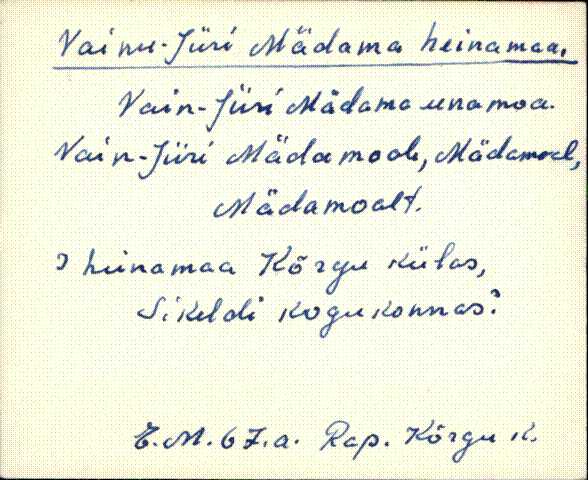 Vainu-Jüri Mädama heinamaa.
Vain-Jüri Mädama unamoa.
Vain-Jüri Mädamoale, Mädamoal,
Mädamoalt.
? heinamaa Kõrgu külas,
Sikeldi kogukonnas?
E.M. 67.a. Rap. Kõrgu k.